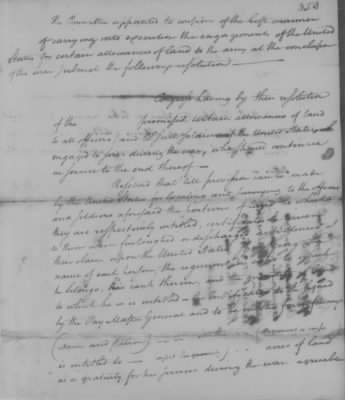 353
The Committee appointed to consider of the best manner
of carrying into execution the engagements of the United
States for certain allowances of land to the army at the conclusion
of the war submit the following resolution
Congress having by their resolution
of the promised certain allowances of land
to all officers, and to all soldiers of the United States,
engaged to serve during the war, who should continue
in service to the end thereof —
Resolved that till provision can be made
by the United States for locating and surveying to the officers
and soldiers aforesaid the portions of land to which
they are respectively entitled, certificates be given
to them when furloughed or discharged
their claim upon the United States
name of each person, the regiment to which
he belongs, his rank therein, and the quantity of land
to which he is entitled
by the Pay Master General and to be in the form following
(name and Nation) in the
is entitled to acres of land
as a gratuity for his services during the war agreeable